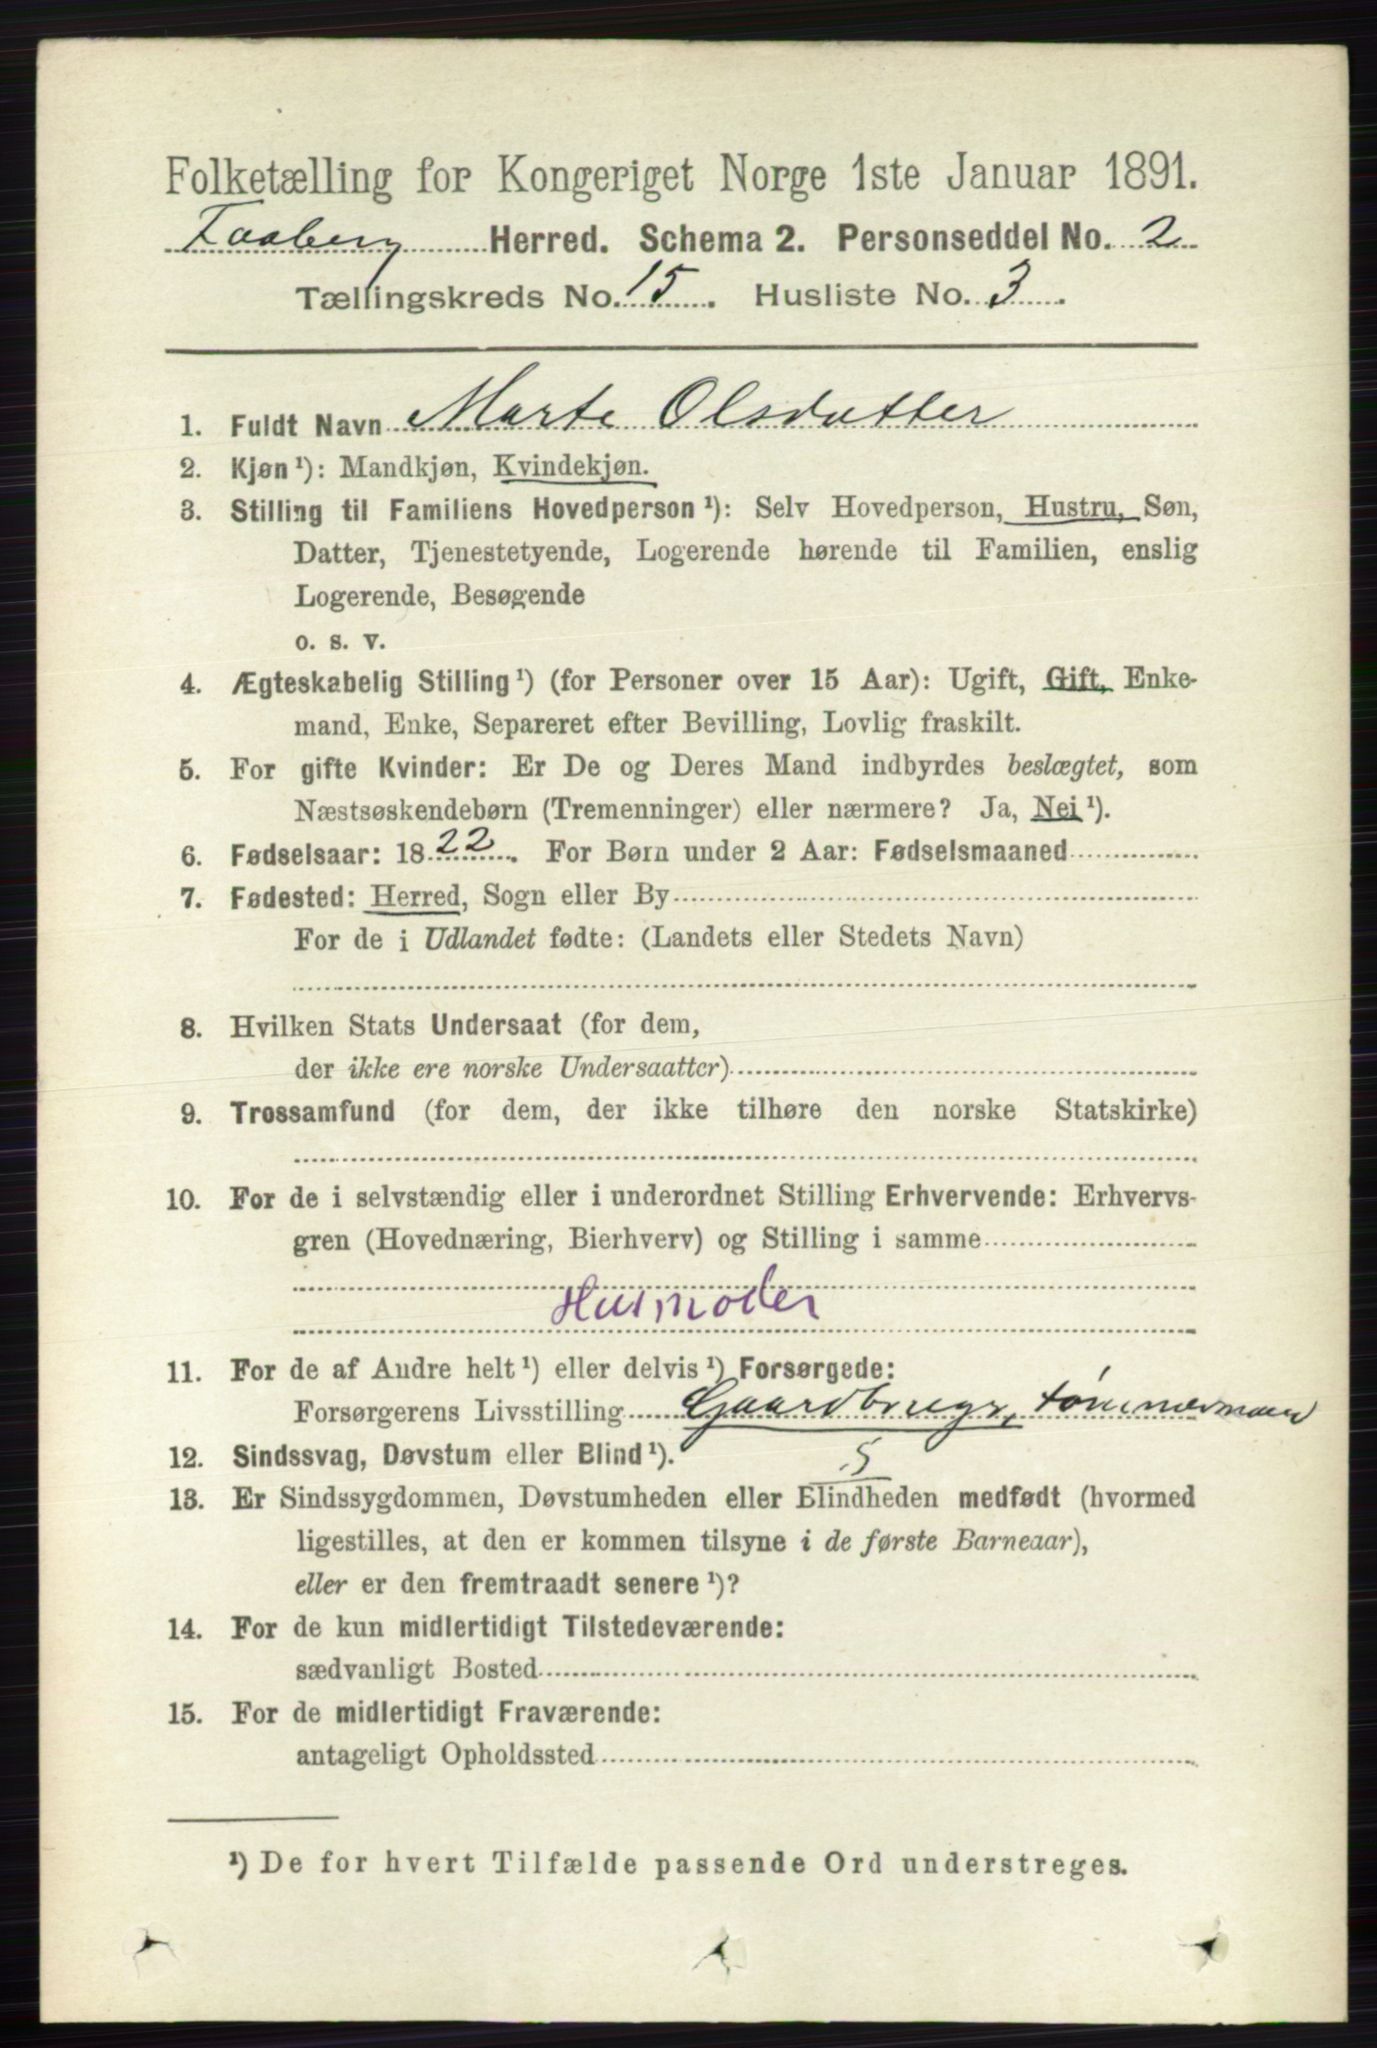 Folketælling for Kongeriget Norge 1ste Januar 1891.
Faaberg Herred. Schema 2. Personseddel No. 2
Tællingskreds No. 15. Husliste No. 3.
1. Fuldt Navn Marte Olsdatter
2. Kjøn¹): Mandkjøn, Kvindekjøn.
3. Stilling til Familiens Hovedperson¹): Selv Hovedperson, Hustru, Søn,
Datter, Tjenestetyende, Logerende hørende til Familien, enslig
Logerende, Besøgende
o. s. v.
4. Ægteskabelig Stilling¹) (for Personer over 15 Aar): Ugift, Gift, Enke-
mand, Enke, Separeret efter Bevilling, Lovlig fraskilt.
5. For gifte Kvinder: Er De og Deres Mand indbyrdes beslægtet, som
Næstsøskendebørn (Tremenninger) eller nærmere? Ja, Nei¹).
6. Fødselsaar: 1822. For Børn under 2 Aar: Fødselsmaaned
7. Fødested: Herred, Sogn eller By
For de i Udlandet fødte: (Landets eller Stedets Navn)
8. Hvilken Stats Undersaat (for dem,
der ikke ere norske Undersaatter)
9. Trossamfund (for dem, der ikke tilhøre den norske Statskirke)
10. For de i selvstændig eller i underordnet Stilling Erhvervende: Erhvervs-
gren (Hovednæring, Bierhverv) og Stilling i samme
Husmoder
11. For de af Andre helt¹) eller delvis¹) Forsørgede:
Forsørgerens Livsstilling Gaardbruger, tømmermand
12. Sindssvag, Døvstum eller Blind¹). 5
13. Er Sindssygdommen, Døvstumheden eller Blindheden medfødt (hvormed
ligestilles, at den er kommen tilsyne i de første Barneaar),
eller er den fremtraadt senere¹)?
14. For de kun midlertidigt Tilstedeværende:
sædvanligt Bosted
15. For de midlertidigt Fraværende:
antageligt Opholdssted
¹) De for hvert Tilfælde passende Ord understreges.